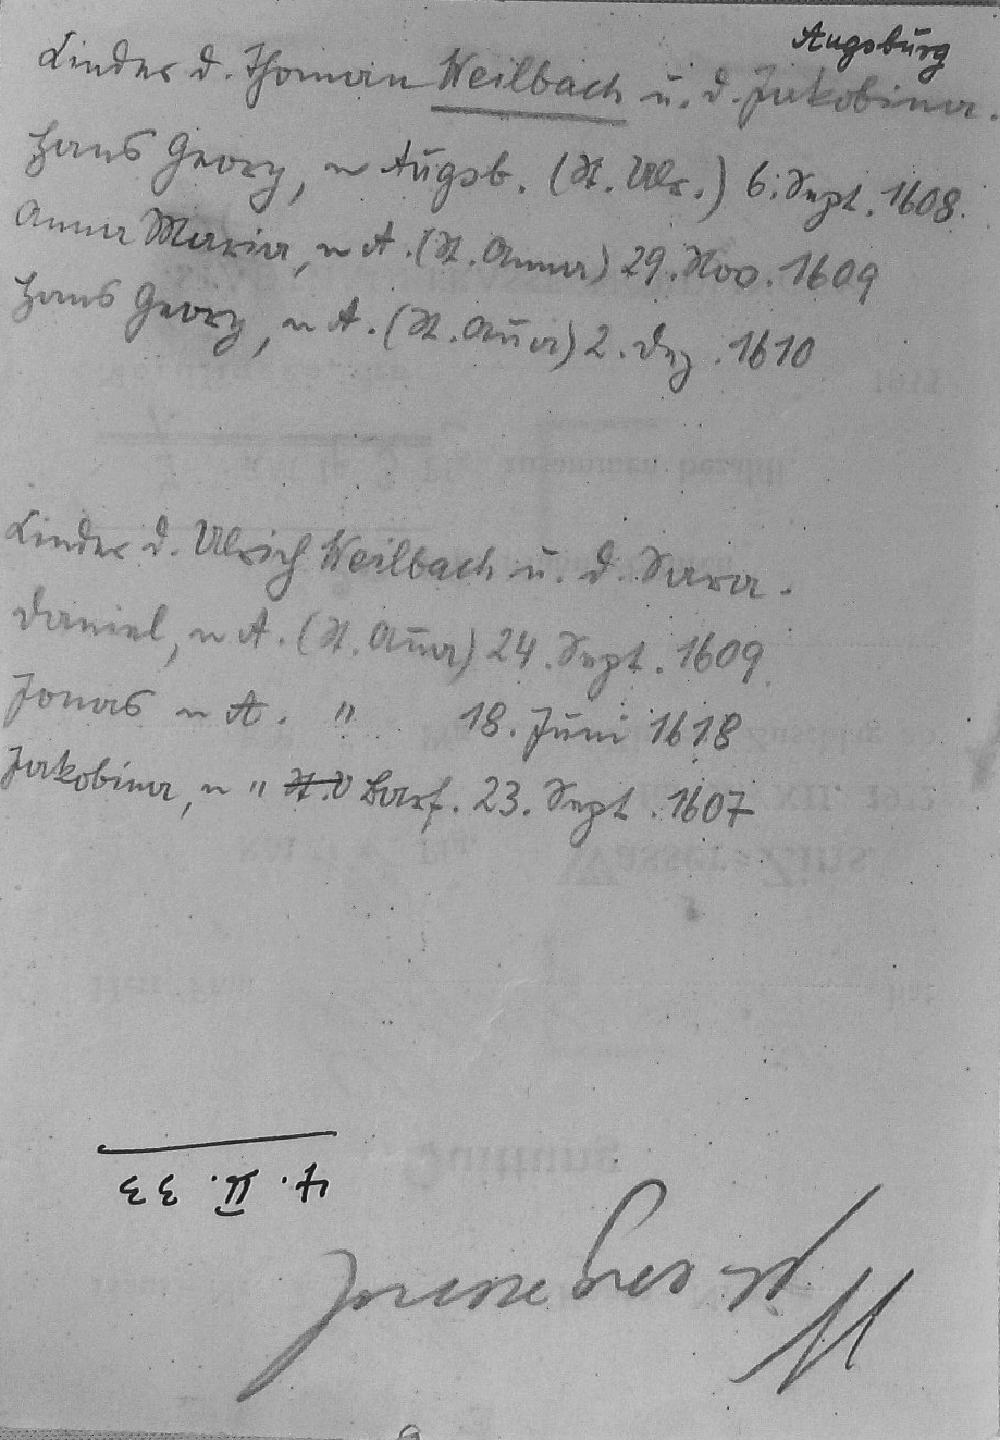 Augsburg
Kinder d. Thoman Weilbach u. d. Jakobina.
Hans Georg, ~ Augsb. (St. Ulr.) 6. Sept. 1608.
Anna Maria, ~ A. (St. Anna) 29. Nov. 1609
Hans Georg, ~ A. (St. Anna) 2. Dez. 1610
Kinder d. Ulrich Weilbach u. d. Sara.
Daniel, ~ A. (St. Anna) 24. Sept. 1609
Jonas ~ A. " 18. Juni 1618
Jakobina, ~ " Barf. 23. Sept. 1607
7. II. 33